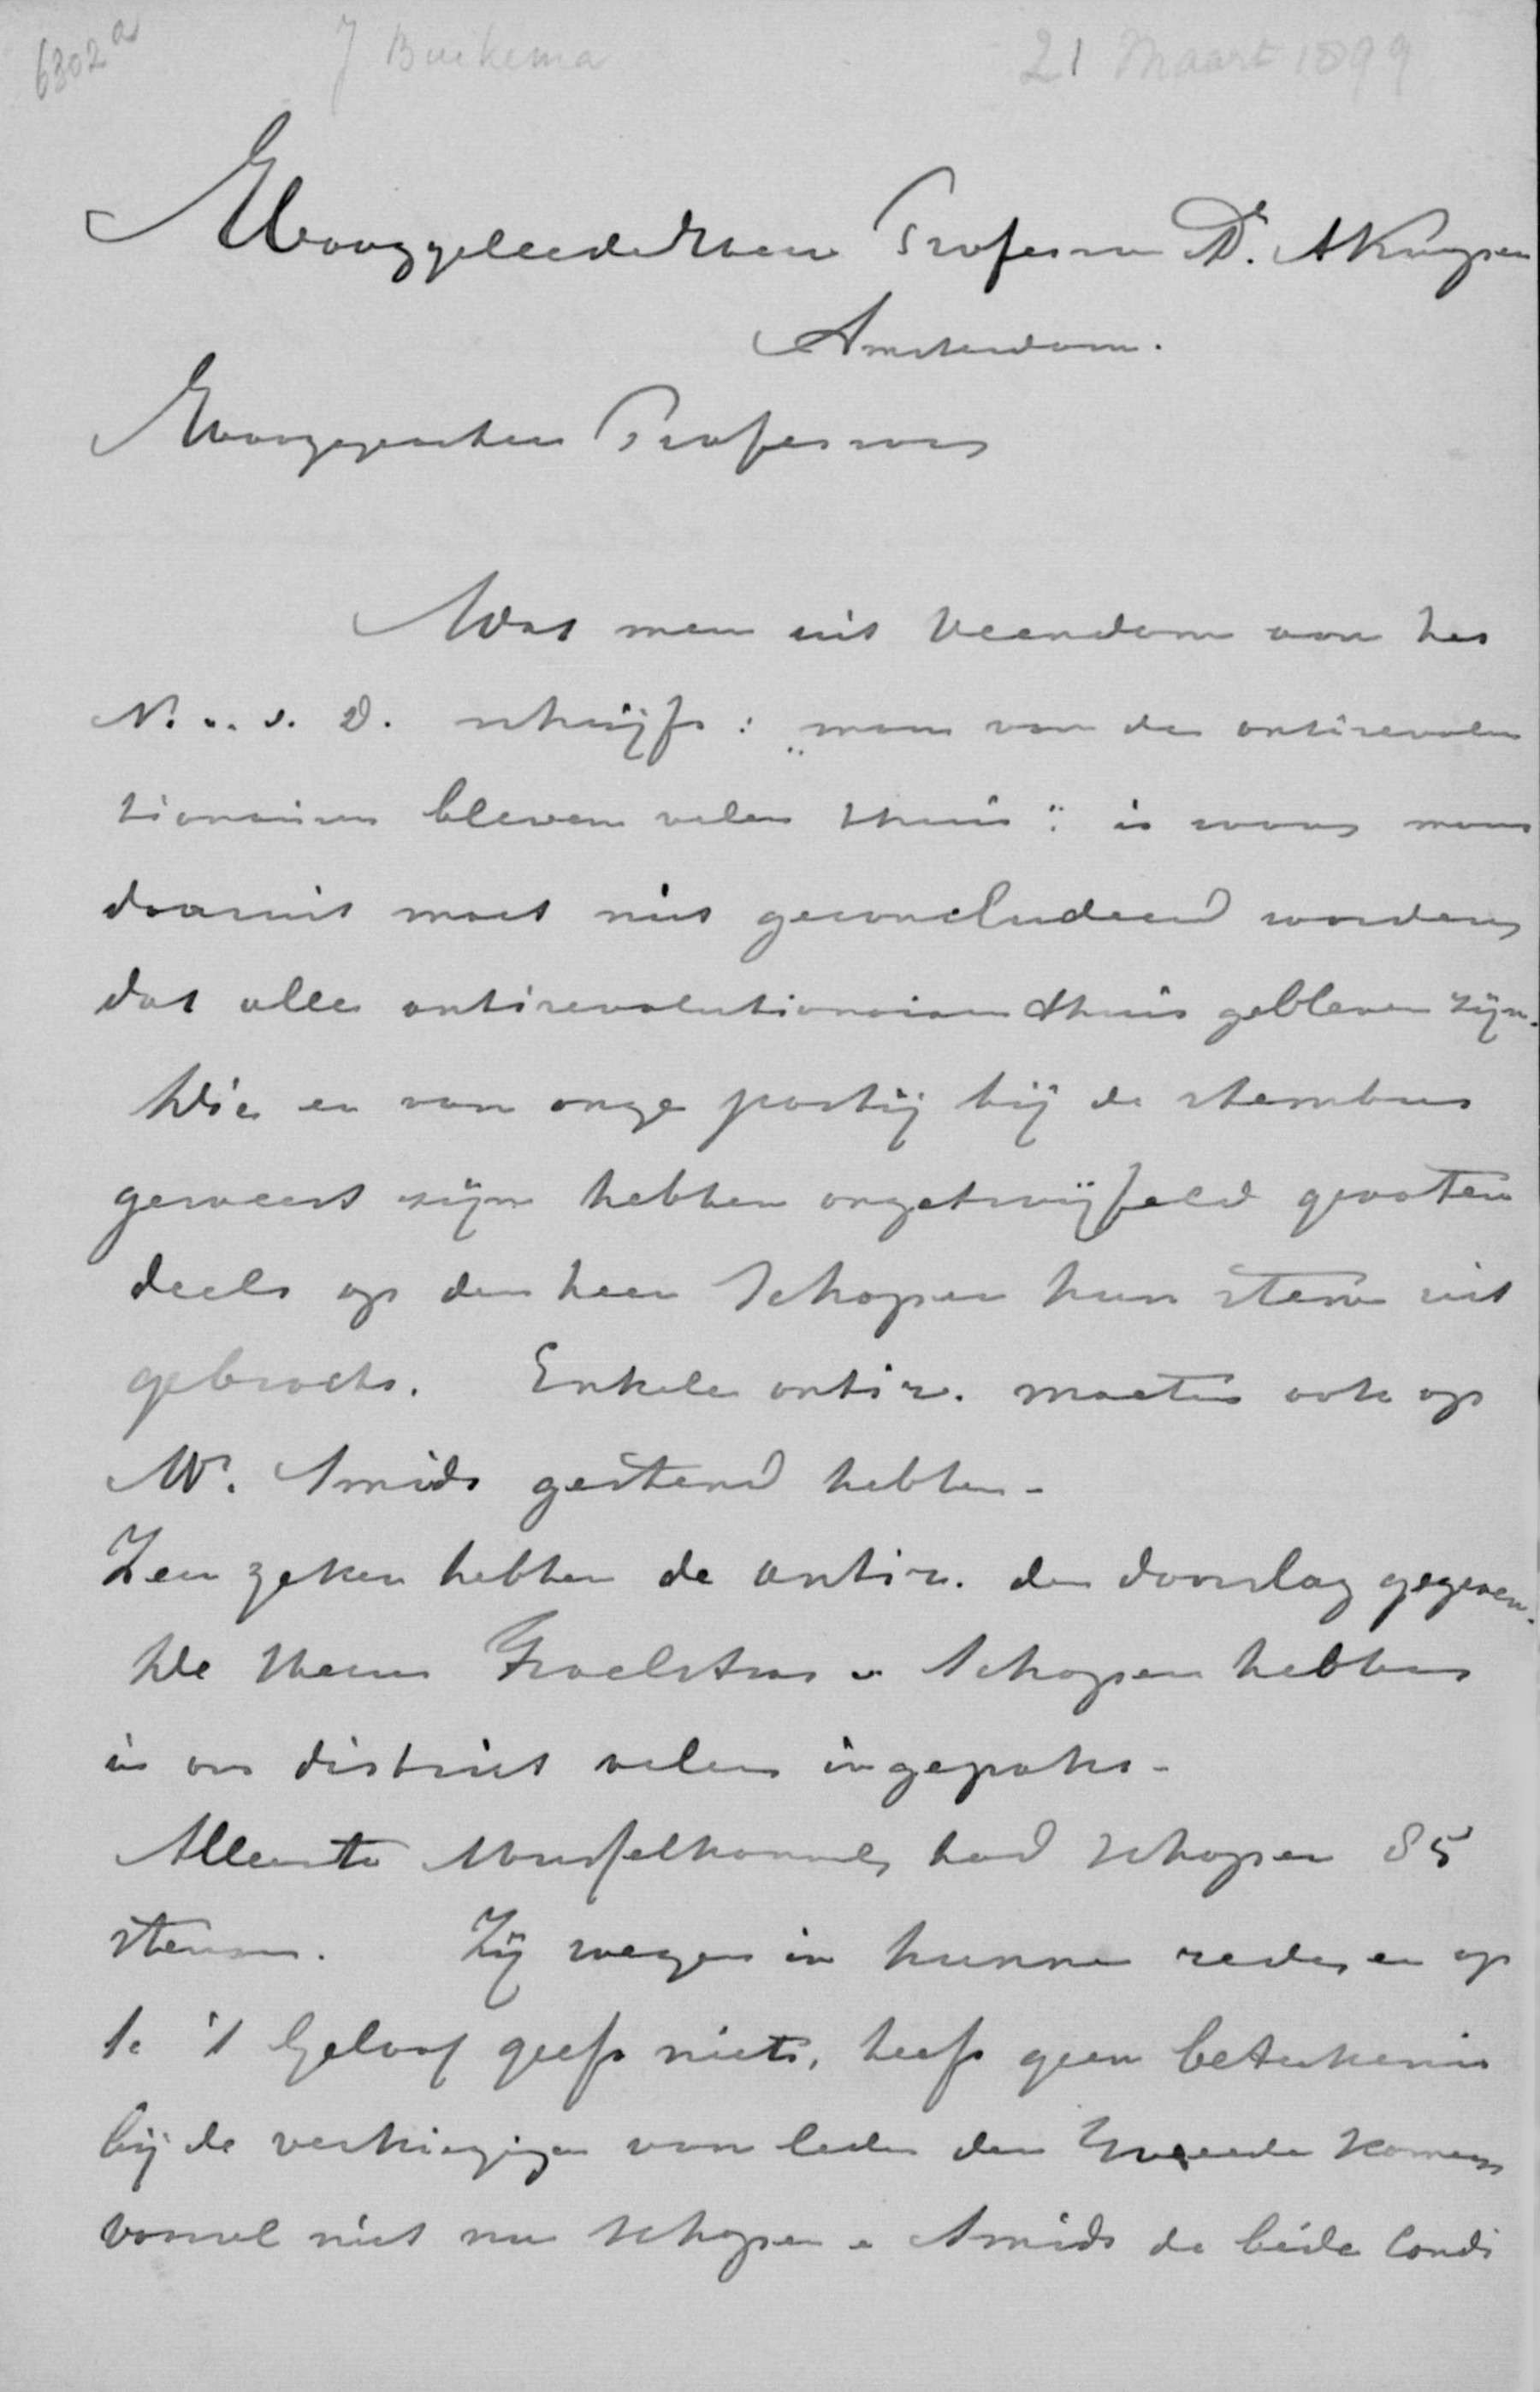 6802a J Buekema 21 Maart 1899
Hooggeleerde Heer Professor Dr. A Kuyper
Amsterdam.
Hooggeachte Professor
Wat men uit Veendam aan het
N. v. d. D. schrijft: „maar van de antirevolu
tionairen bleven velen thuis": is waar maar
daaruit moet niet geconcludeerd worden
dat alle antirevolutionairen thuis gebleven zijn.
Die er van onze partij bij de stembus
geweest zijn hebben ongetwijfeld grooten
deels op den heer Schaper hun stem uit
gebracht. Enkele antir. moeten ook op
Mr. Smids gestemd hebben.
Zeer zeker hebben de antir. den doorslag gegeven.
De Heeren Troelstra en Schaper hebben
in ons district velen ingepakt.
Alleen te Musselkanaal had Schaper 85
stemmen. Zij wezen in hunne redes er op
1e 't Geloof geeft niets, heeft geen beteekenis
bij de verkiezingen van leden der Tweede Kamer
vooral niet nu Schaper en Smids de beide candi